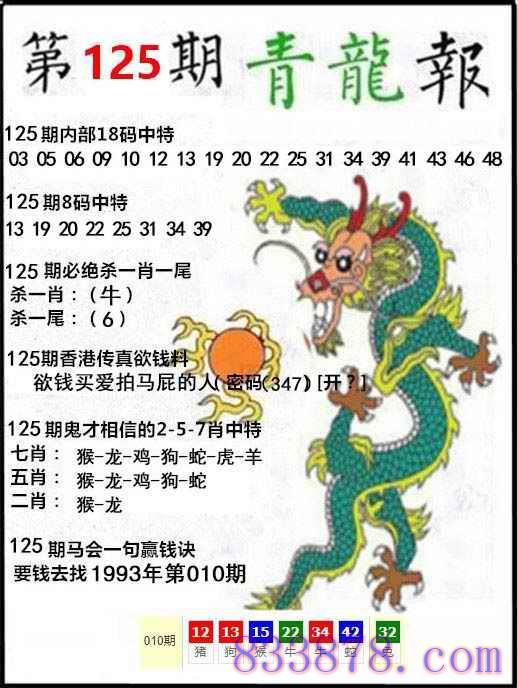 第125期青龍報
125期内部18码中特
03 05 06 09 10 12 13 19 20 22 25 31 34 39 41 43 46 48
125期8码中特
13 19 20 22 25 31 34 39
125期必绝杀一肖一尾
杀一肖：（牛）
杀一尾：（6）
125期香港传真欲钱料
欲钱买爱拍马屁的人(密码(347)[开？]
125期鬼才相信的2-5-7肖中特
七肖： 猴-龙-鸡-狗-蛇-虎-羊
五肖： 猴-龙-鸡-狗-蛇
二肖： 猴-龙
125期马会一句赢钱诀
要钱去找1993年第010期
010期 12 13 15 22 34 42 32
猪 狗 猴 牛 牛 蛇 兔
833878.com